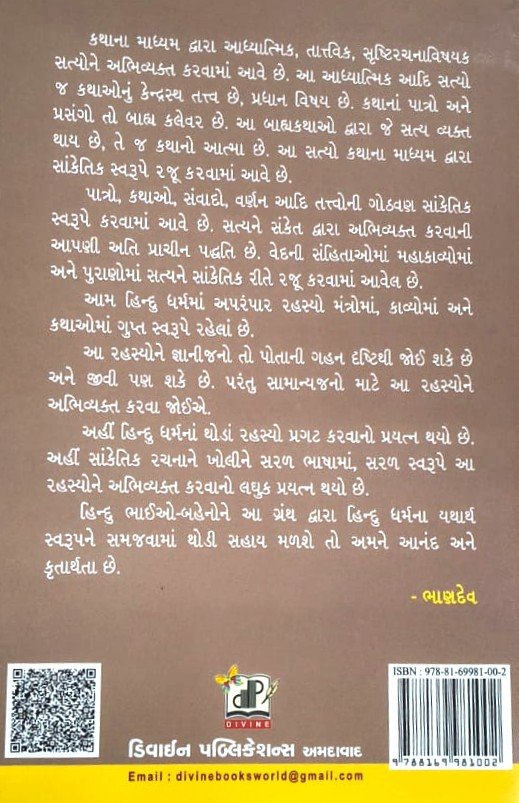 કથાના માધ્યમ દ્વારા આધ્યાત્મિક, તાત્ત્વિક, સૃષ્ટિરચનાવિષયક
સત્યોને અભિવ્યક્ત કરવામાં આવે છે. આ આધ્યાત્મિક આદિ સત્યો
જ કથાઓનું કેન્દ્રસ્થ તત્ત્વ છે, પ્રધાન વિષય છે. કથાનાં પાત્રો અને
પ્રસંગો તો બાહ્ય કલેવર છે. આ બાહ્યકથાઓ દ્વારા જે સત્ય વ્યક્ત
થાય છે, તે જ કથાનો આત્મા છે. આ સત્યો કથાના માધ્યમ દ્વારા
સાંકેતિક સ્વરૂપે રજૂ કરવામાં આવે છે.
પાત્રો, કથાઓ, સંવાદો, વર્ણન આદિ તત્ત્વોની ગોઠવણ સાંકેતિક
સ્વરૂપે કરવામાં આવે છે. સત્યને સંકેત દ્વારા અભિવ્યક્ત કરવાની
આપણી અતિ પ્રાચીન પદ્ધતિ છે. વેદની સંહિતાઓમાં મહાકાવ્યોમાં
અને પુરાણોમાં સત્યને સાંકેતિક રીતે રજૂ કરવામાં આવેલ છે.
આમ હિન્દુ ધર્મમાં અપરંપાર રહસ્યો મંત્રોમાં, કાવ્યોમાં અને
કથાઓમાં ગુપ્ત સ્વરૂપે રહેલાં છે.
આ રહસ્યોને જ્ઞાનીજનો તો પોતાની ગહન દૃષ્ટિથી જોઈ શકે છે
અને જીવી પણ શકે છે. પરંતુ સામાન્યજનો માટે આ રહસ્યોને
અભિવ્યક્ત કરવા જોઈએ.
અહીં હિન્દુ ધર્મનાં થોડાં રહસ્યો પ્રગટ કરવાનો પ્રયત્ન થયો છે.
અહીં સાંકેતિક રચનાને ખોલીને સરળ ભાષામાં, સરળ સ્વરૂપે આ
રહસ્યોને અભિવ્યક્ત કરવાનો લઘુક પ્રયત્ન થયો છે.
હિન્દુ ભાઈઓ-બહેનોને આ ગ્રંથ દ્વારા હિન્દુ ધર્મના યથાર્થ
સ્વરૂપને સમજવામાં થોડી સહાય મળશે તો અમને આનંદ અને
કૃતાર્થતા છે.
- ભાણદેવ
ISBN : 978-81-69981-00-2
9 788169 981002
DIVINE
ડિવાઈન પબ્લિકેશન્સ અમદાવાદ
Email : divinebooksworld@gmail.com